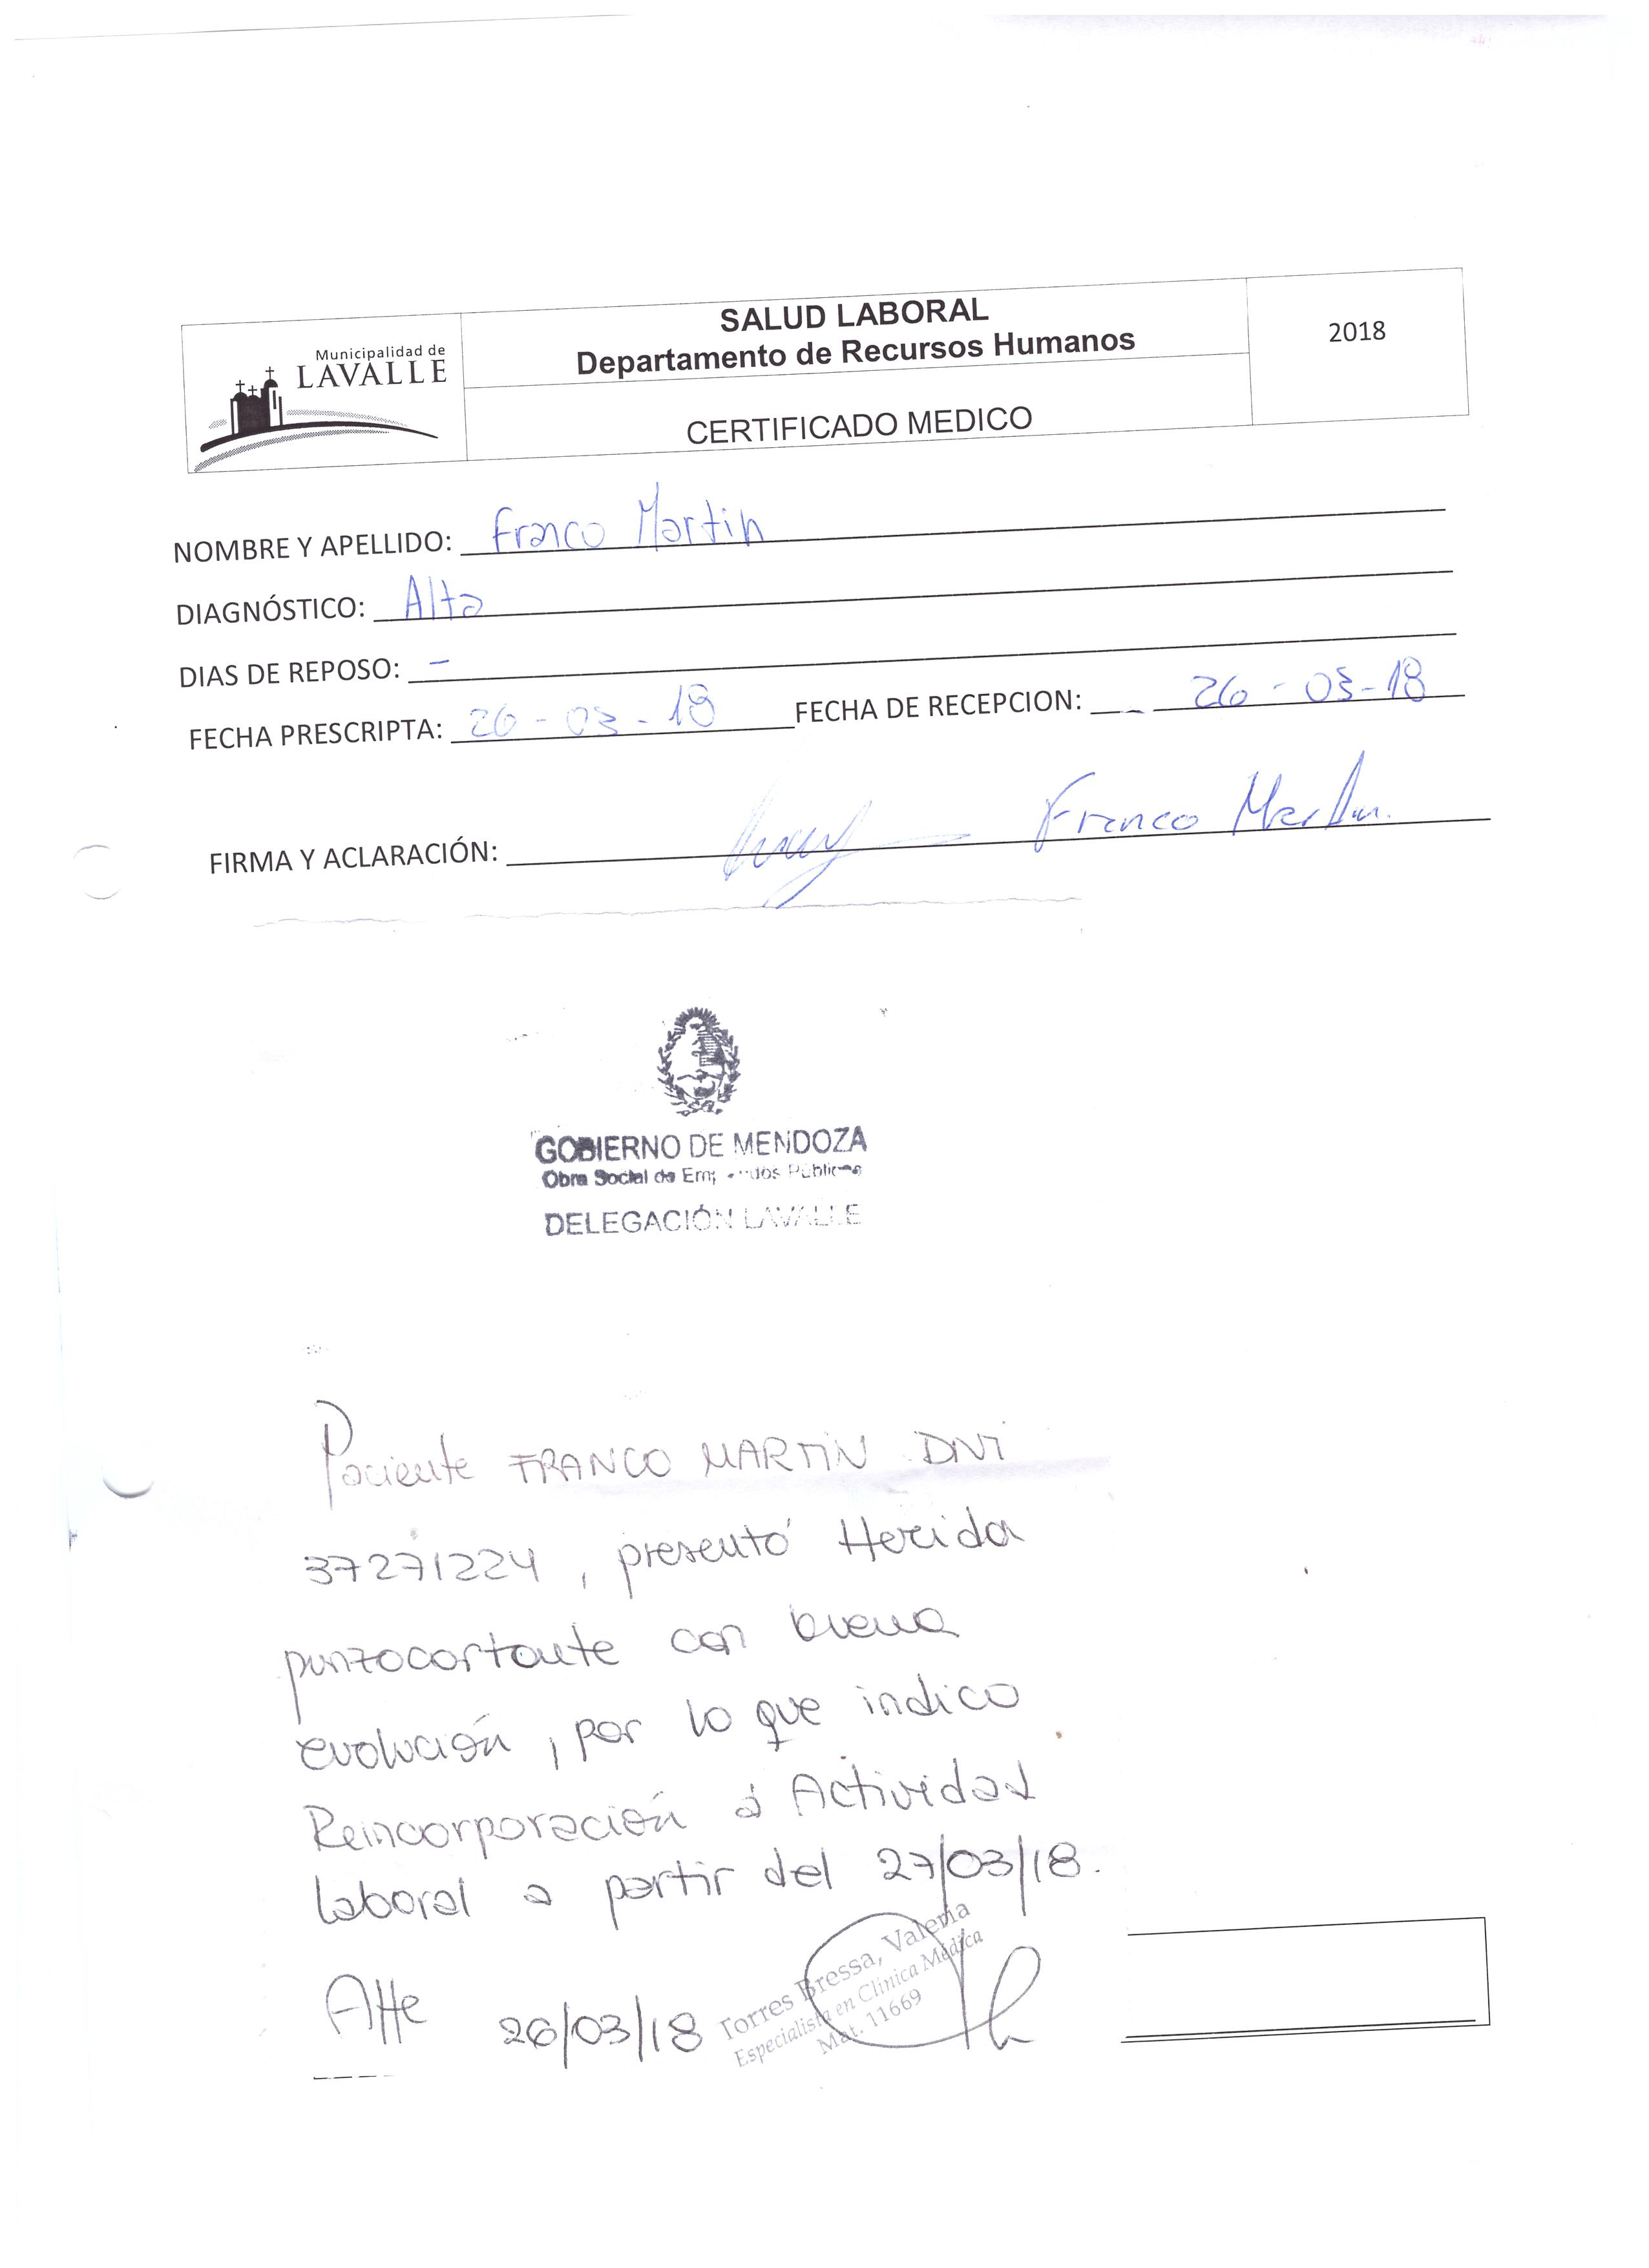 Municipalidad de
LAVALLE
SALUD LABORAL
Departamento de Recursos Humanos
CERTIFICADO MEDICO
2018
NOMBRE Y APELLIDO: Franco Martin
DIAGNÓSTICO: Alta
DIAS DE REPOSO: -
FECHA PRESCRIPTA: 26-03-18 FECHA DE RECEPCION: 26-03-18
FIRMA Y ACLARACIÓN: Franco Martin.
GOBIERNO DE MENDOZA
Obra Social de Empleados Públicos
DELEGACIÓN LAVALLE
Paciente FRANCO MARTIN DNI
37271224, presentó Herida
punzocortante con buena
evolución, por lo que indico
Reincorporación á Actividad
laboral a partir del 27/03/18.
Atte 26/03/18
Torres Bressa, Valeria
Especialista en Clínica Médica
Mat. 11669